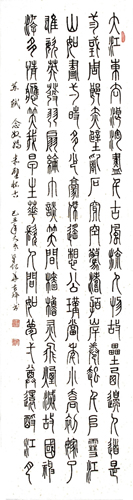 大江東去浪淘盡千古風流人物故壘西邊人道是
三國周郎赤壁亂石穿空驚濤拍岸捲起千堆雪江
山如畫一時多少豪傑遙想公瑾當年小喬初嫁了
雄姿英發羽扇綸巾談笑間檣櫓灰飛煙滅故國神
遊多情應笑我早生華髮人間如夢一尊還酹江月
蘇軾念奴嬌赤壁懷古